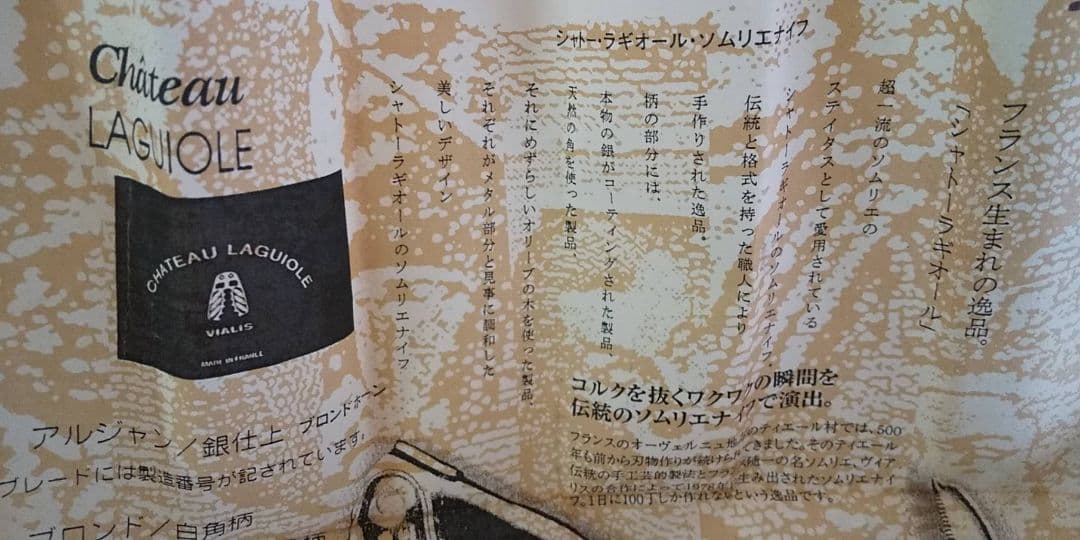 シャトー・ラギオール・ソムリエナイフ
フランス生まれの逸品。
「シャトーラギオール」
超一流のソムリエの
ステイタスとして愛用されている
シャトーラギオールのソムリエナイフ。
伝統と格式を持った職人により
手作りされた逸品。
柄の部分には、
本物の銀がコーティングされた製品、
天然の角を使った製品、
それにめずらしいオリーブの木を使った製品、
それぞれがメタル部分と見事に調和した
美しいデザイン
シャトーラギオールのソムリエナイフ
Château
LAGUIOLE
CHATEAU LAGUIOLE
VIALIS
MADE IN FRANCE
コルクを抜くワクワクの瞬間を
伝統のソムリエナイフで演出。
フランスのオーヴェルニュ のティエール村では、500
年も前から刃物作りが続けら きました。そのティエール
伝統の手工芸的製法とフラ 随一の名ソムリエ、ヴィア
リスの合作によって1978年 生み出されたソムリエナイ
フ。1日に100丁しか作れないという逸品です。
アルジャン/銀仕上 ブロンドホーン
ブレードには製造番号が記されています。
ブロンド/白角柄